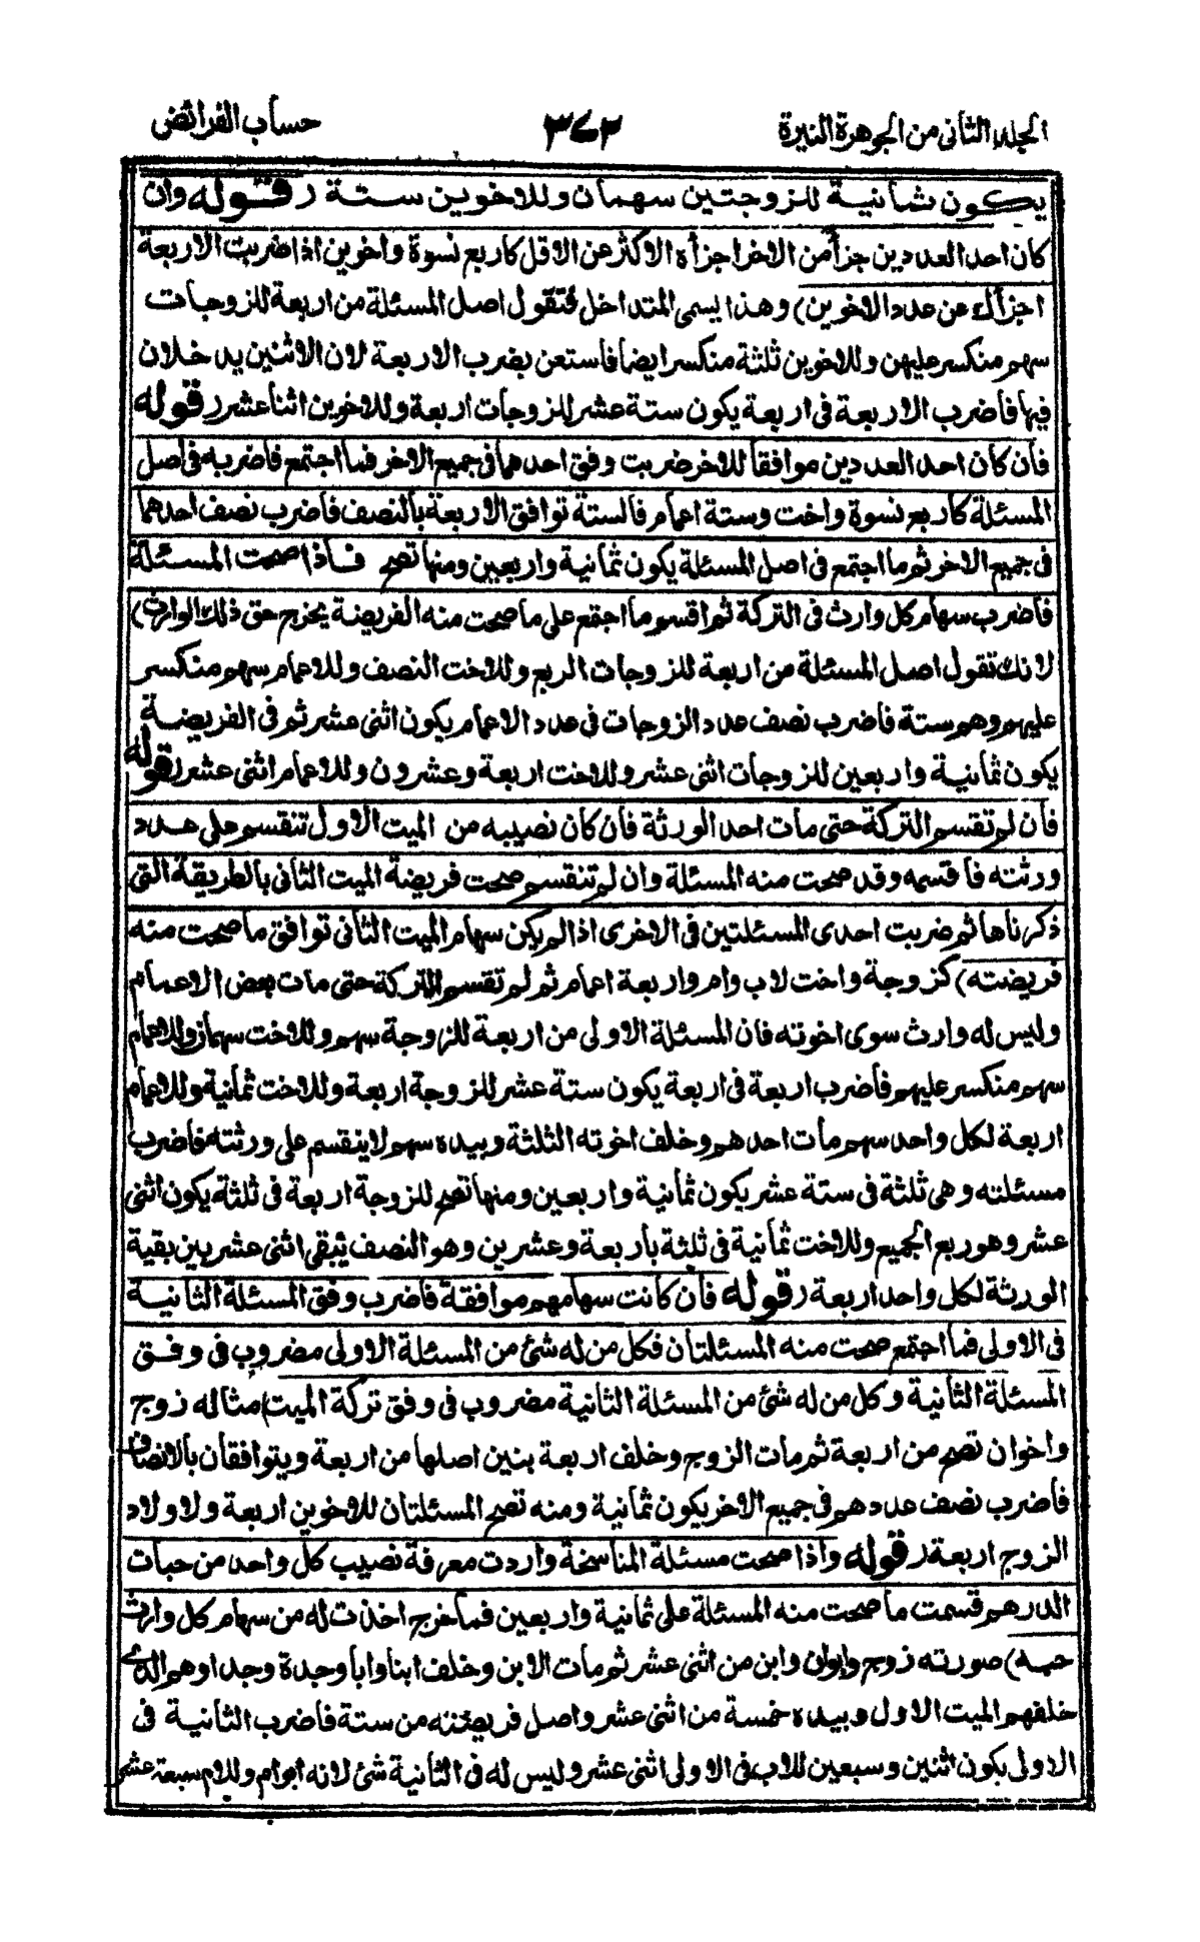 الجلد الثانى من الجوهرة النيرة
٣٧٢
حساب الفرائض
يكون ثمانية للزوجتين سهمان وللاخوين ستة (قوله وان
كان احد العددين جزأ من الاخر اجزأه الاكثر عن الاقل كاربع نسوة واخوين اذا ضربت الاربعة
اجزأك عن عدد الاخوين) وهذا يسمى المتداخل فتقول اصل المسئلة من اربعة للزوجات
سهم منكسر عليهن وللاخوين ثلثة منكسر ايضا فاستعن بضرب الاربعة لان الاثنين يدخلان
فيها فاضرب الاربعة فى اربعة يكون ستة عشر للزوجات اربعة وللاخوين اثنا عشر (قوله
فان كان احد العددين موافقا للاخر ضربت وفق احدهما فى جميع الاخر فما اجتمع فاضربه فى اصل
المسئلة كاربع نسوة واخت وستة اعمام فالستة توافق الاربعة بالنصف فاضرب نصف احدهما
فى جميع الاخر ثم ما اجتمع فى اصل المسئلة يكون ثمانية واربعين ومنها تصح فاذا صحت المسئلة
فاضرب سهام كل وارث فى التركة ثم اقسم ما اجتمع على ما صحت منه الفريضة يخرج حق ذلك الوارث)
لانك تقول اصل المسئلة من اربعة للزوجات الربع وللاخت النصف وللاعمام سهم منكسر
عليهم وهم ستة فاضرب نصف عدد الزوجات فى عدد الاعمام يكون اثنى عشر ثم فى الفريضة
يكون ثمانية واربعين للزوجات اثنى عشر وللاخت اربعة وعشرون وللاعمام اثنى عشر (قوله
فان لم تقسم التركة حتى مات احد الورثة فان كان نصيبه من الميت الاول تنقسم على عدد
ورثته فاقسمه وقد صحت منه المسئلة وان لم تنقسم صحت فريضة الميت الثانى بالطريقة التى
ذكرناها ثم ضربت احدى المسئلتين فى الاخرى اذا لم يكن سهام الميت الثانى توافق ما صحت منه
فريضته) كزوجة واخت لاب وام واربعة اعمام ثم لم تقسم التركة حتى مات بعض الاعمام
وليس له وارث سوى اخوته فان المسئلة الاولى من اربعة للزوجة سهم وللاخت سهمان وللاعمام
سهم منكسر عليهم فاضرب اربعة فى اربعة يكون ستة عشر للزوجة اربعة وللاخت ثمانية وللاعمام
اربعة لكل واحد سهم مات احدهم وخلف اخوته الثلثة وبيده سهم لا ينقسم على ورثته فاضرب
مسئلته وهى ثلثة فى ستة عشر يكون ثمانية واربعين ومنها تصح للزوجة اربعة فى ثلثة يكون اثنى
عشر وهو ربع الجميع وللاخت ثمانية فى ثلثة باربعة وعشرين وهو النصف يبقى اثنى عشر بين بقية
الورثة لكل واحد اربعة (قوله فان كانت سهامهم موافقة فاضرب وفق المسئلة الثانية
فى الاولى فما اجتمع صحت منه المسئلتان فكل من له شئ من المسئلة الاولى مضروب فى وفق
المسئلة الثانية وكل من له شئ من المسئلة الثانية مضروب فى وفق تركة الميت) مثاله زوج
واخوان تصح من اربعة ثم مات الزوج وخلف اربعة بنين اصلها من اربعة ويتوافقان بالانصاف
فاضرب نصف عددهم فى جميع الاخر يكون ثمانية ومنه تصح المسئلتان للاخوين اربعة ولاولاد
الزوج اربعة (قوله واذا صحت مسئلة المناسخة واردت معرفة نصيب كل واحد من حبات
الدرهم قسمت ما صحت منه المسئلة على ثمانية واربعين فما خرج اخذت له من سهام كل وارث
حبه) صورته زوج وابوان وابن من اثنى عشر ثم مات الابن وخلف ابنا وابا وجدة وجدا وهم الذى
خلفهم الميت الاول وبيده خمسة من اثنى عشر واصل فريضته من ستة فاضرب الثانية فى
الاولى يكون اثنين وسبعين للاب فى الاولى اثنى عشر وليس له فى الثانية شئ لانه ابو ام وللام سبعة عشر